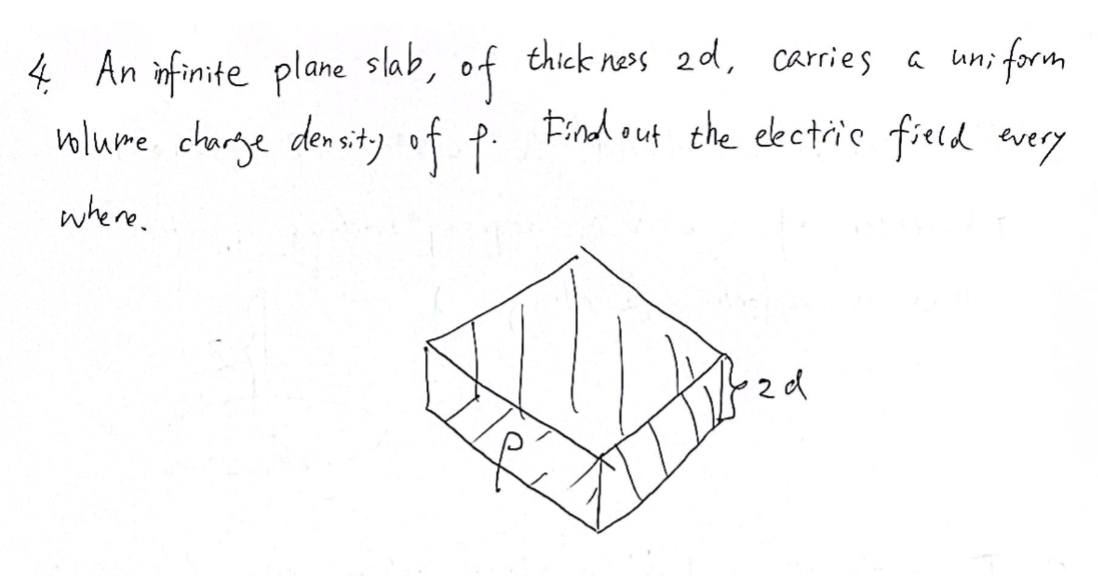 4. An infinite plane slab, of thickness 2d, carries a uniform
volume charge density of ρ. Find out the electric field every
where.
2d
ρ